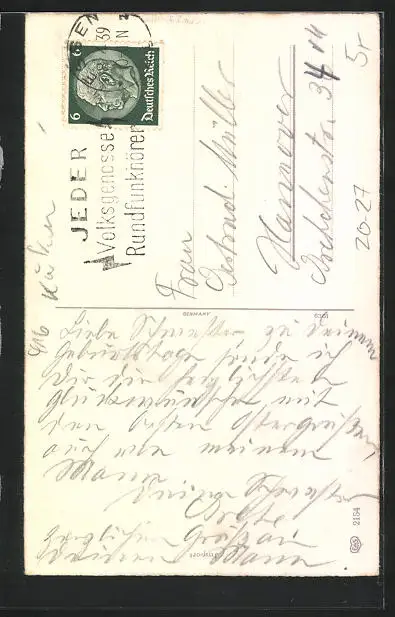 SSEN
39
N
6
6
Deutsches Reich
JEDER
Volksgenosse
Rundfunkhörer
Küken
Frau
Gertrud Müller
Hannover
34
20-27
GERMANY
Liebe Schwester zu Deinem
Geburtstage sende ich
Dir die herzlichsten
Glückwünsche mit
den besten Ostergrüßen,
auch von meinem
Mann
Deine Schwester
herzlichen Gruß an
Deinen Mann
2164